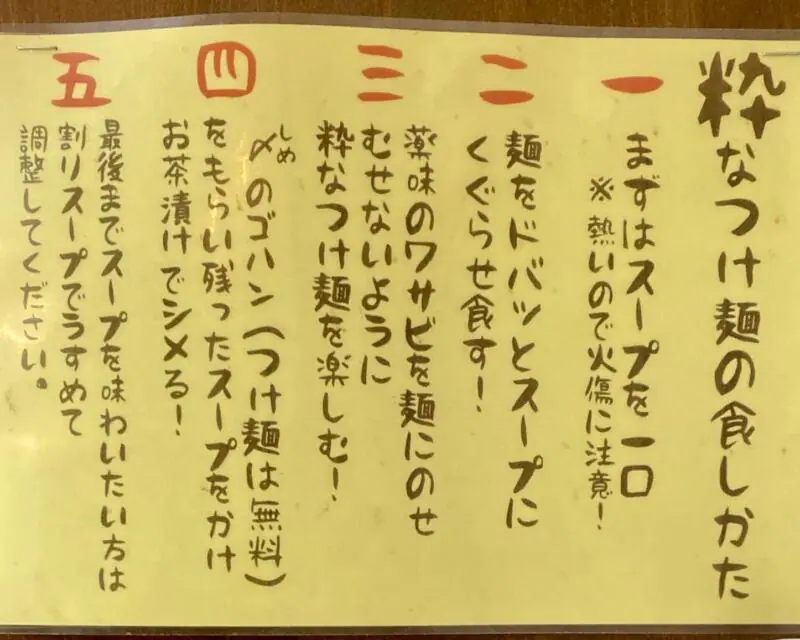 粋なつけ麺の食しかた
一
まずはスープを一口
※熱いので火傷に注意！
二
麺をドバッとスープに
くぐらせ食す！
三
薬味のワサビを麺にのせ
むせないように
粋なつけ麺を楽しむ！
四
しめ
〆のゴハン(つけ麺は無料)
をもらい残ったスープをかけ
お茶漬けでシメる！
五
最後までスープを味わいたい方は
割りスープでうすめて
調整してください。